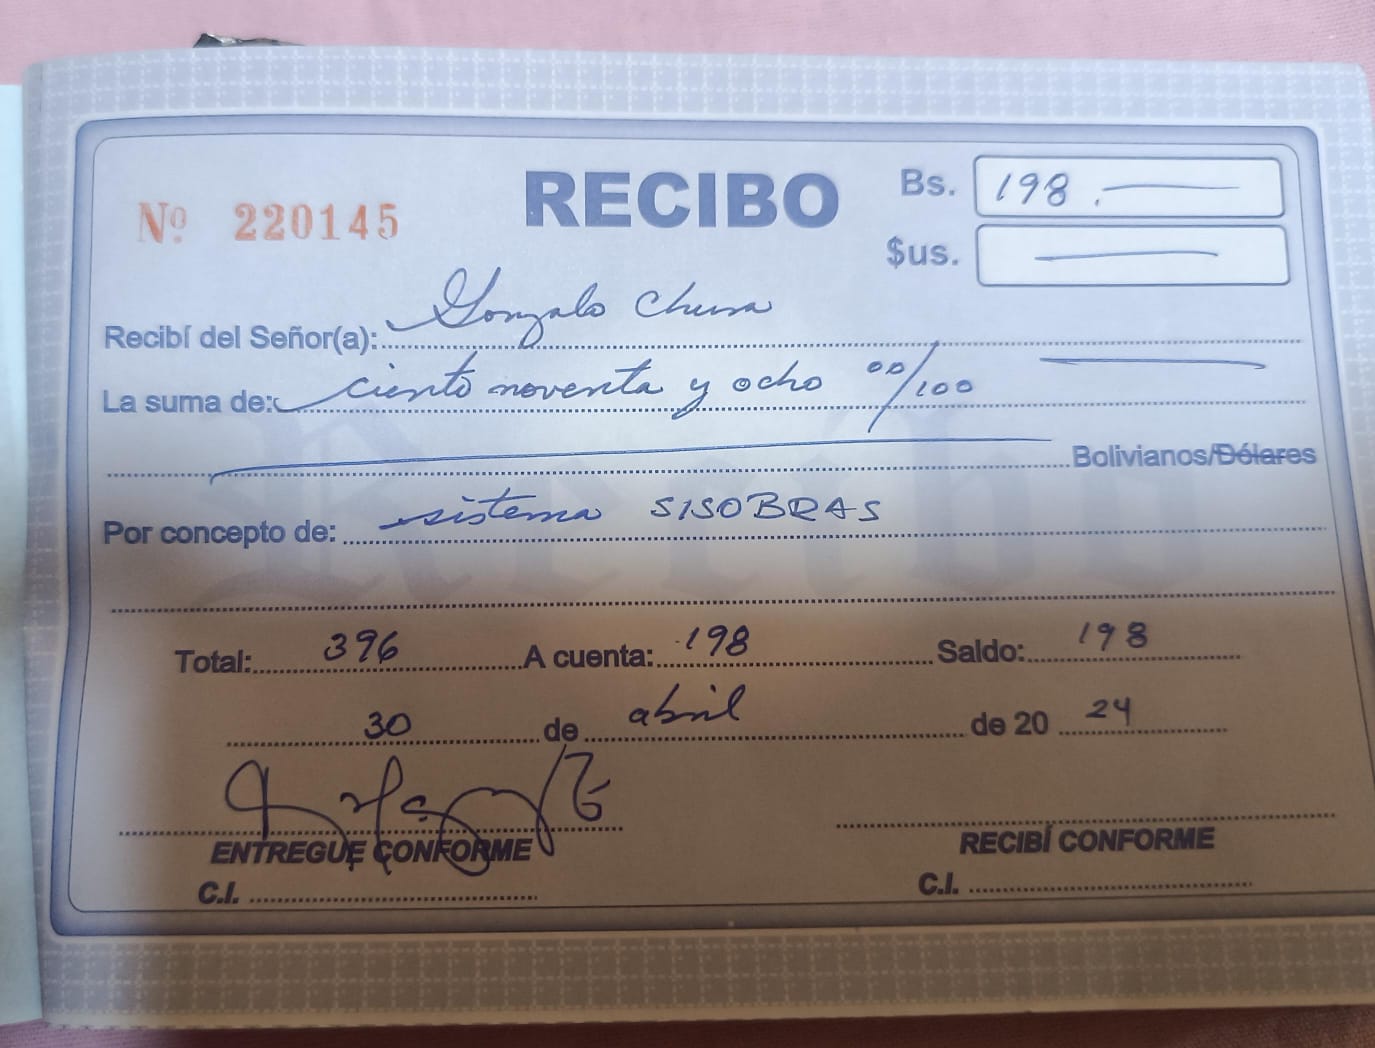 RECIBO
Nº 220145
Bs. 198.
$us.
Recibí del Señor(a): Gonzalo Chura
La suma de: ciento noventa y ocho 00/100
Bolivianos/Dólares
Por concepto de: sistema SISOBRAS
Total: 396 A cuenta: 198 Saldo: 198
30 de abril de 20 24
ENTREGUE CONFORME
C.I.
RECIBÍ CONFORME
C.I.